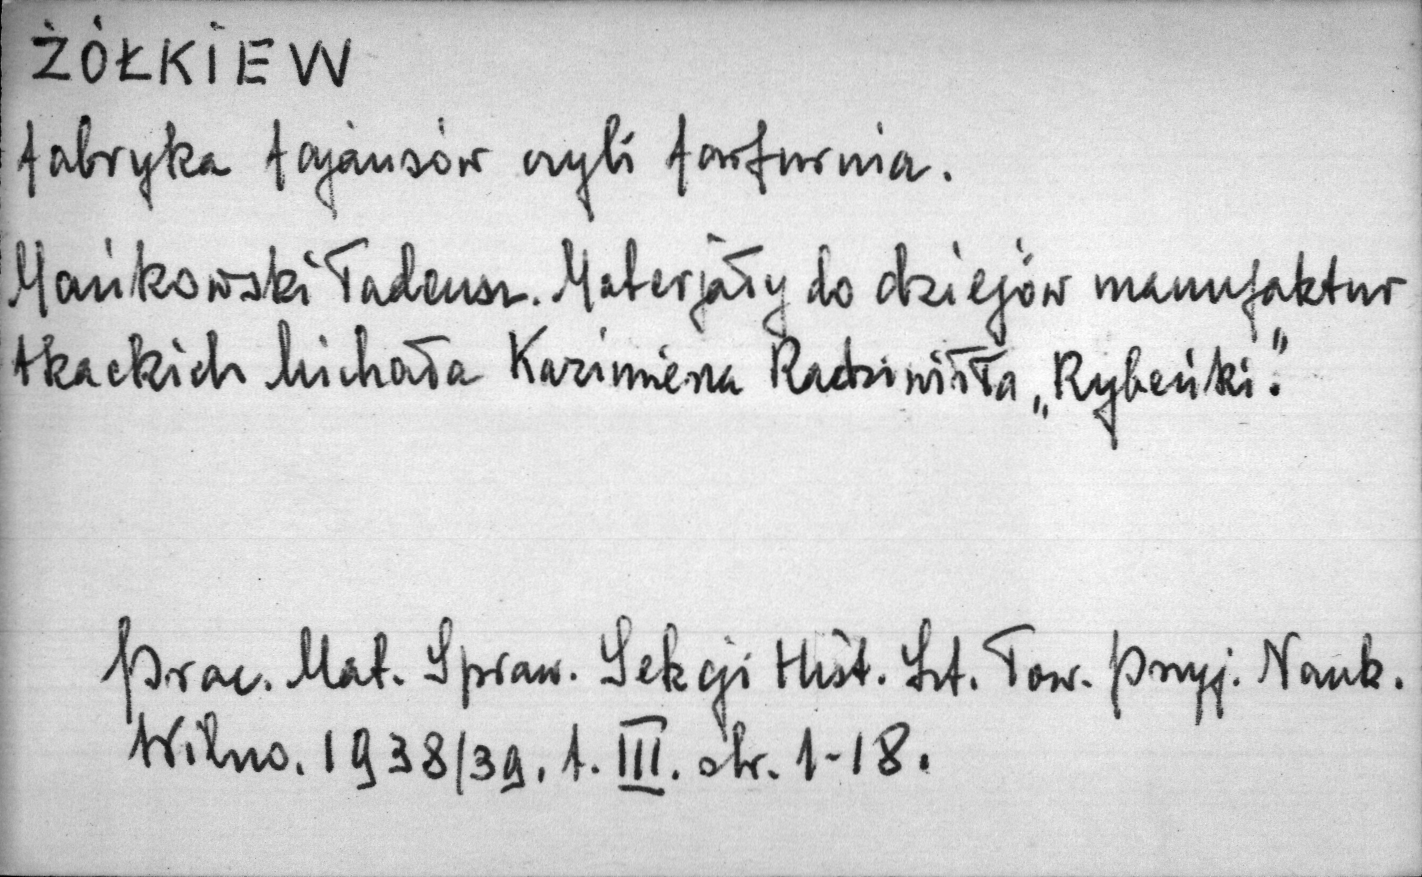 ŻÓŁKIEW
fabryka fajansów czyli farfurnia.
Mańkowski Tadeusz. Materjały do dziejów manufaktur
tkackich Michała Kazimierza Radziwiłła „Rybeńki”.
Prac. Mat. Spraw. Sekcji Hist. Szt. Tow. Przyj. Nauk.
Wilno. 1938/39. t. III. str. 1-18.